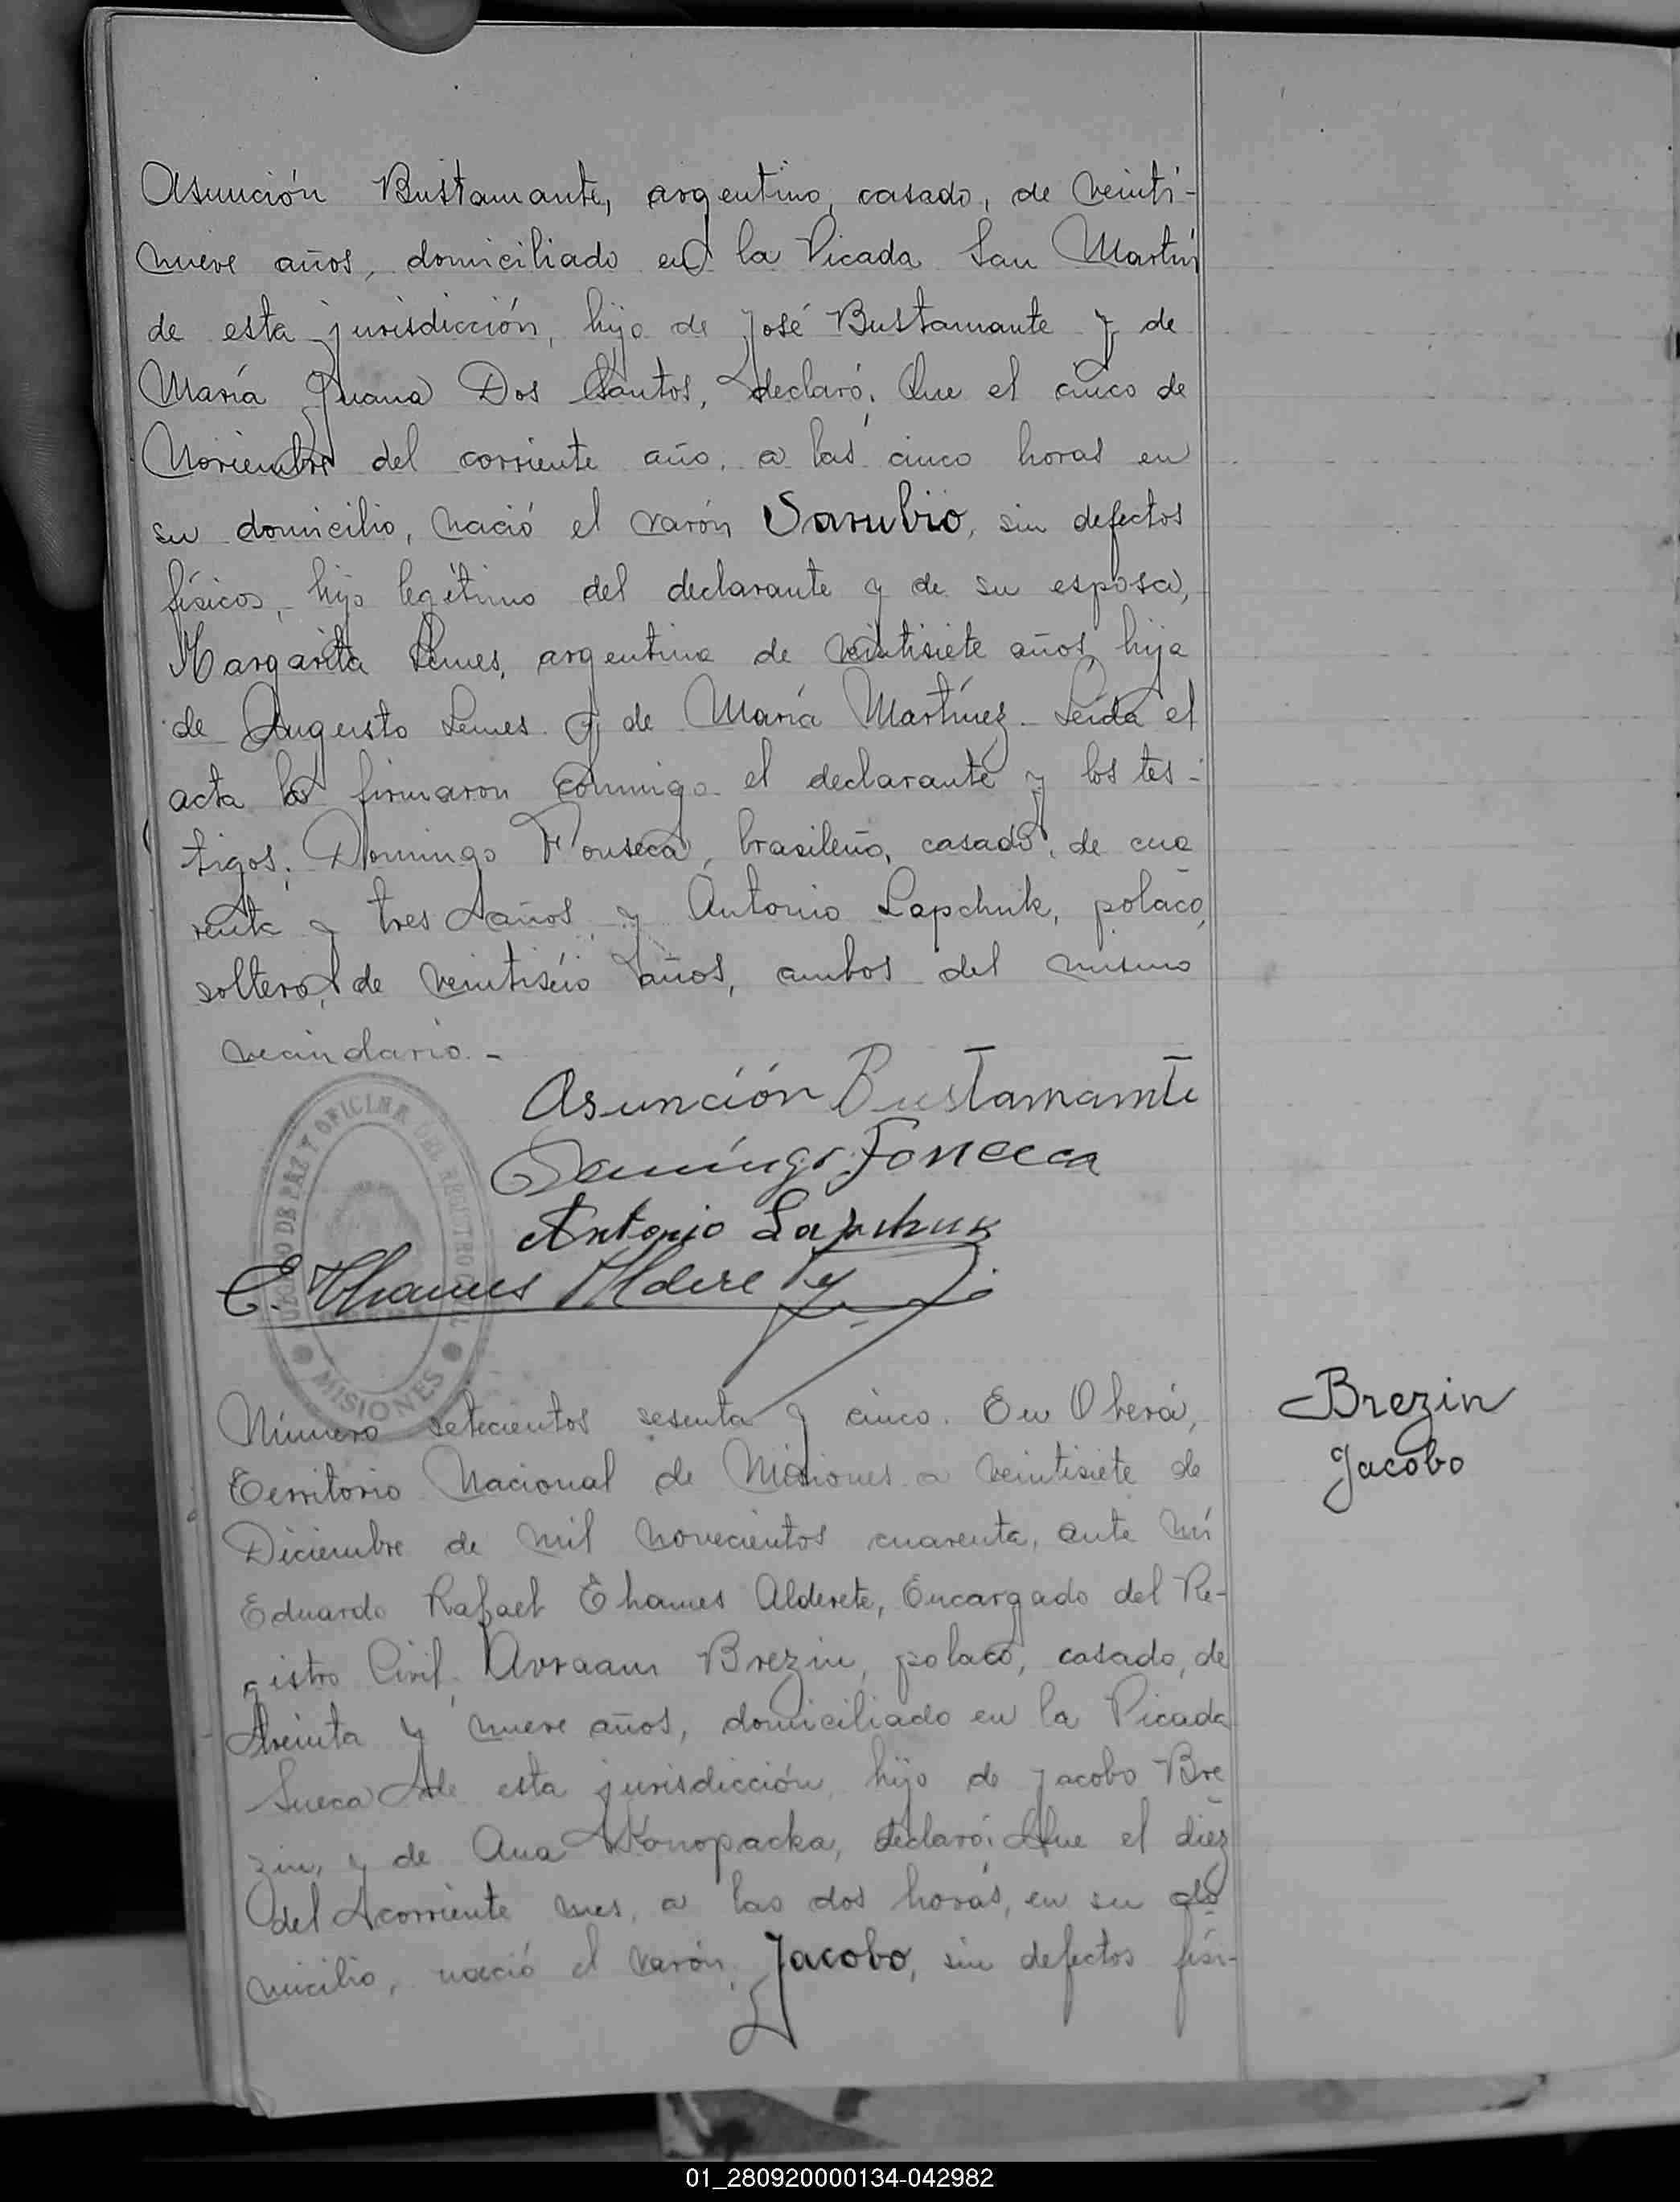 Asunción Bustamante, argentino, casado, de veinti-
nueve años, domiciliado en la Picada San Martín
de esta jurisdicción, hijo de José Bustamante y de
María Juana Dos Santos, declaró: Que el cinco de
Noviembre del corriente año, a las cinco horas en
su domicilio, nació el varón Sarubio, sin defectos
físicos, hijo legítimo del declarante y de su esposa,
Margarita Lemes, argentina de veintisiete años, hija
de Augusto Lemes y de María Martínez. Leída el
acta la firmaron conmigo el declarante y los tes-
tigos: Domingo Fonseca, brasileño, casado, de cua
renta y tres años, y Antonio Lapchuk, polaco,
soltero, de veintiséis años, ambos del mismo
vecindario.-
Asunción Bustamante
Domingo Fonceca
Antonio Lapchuk
E. Thames Alderete
JUZGADO DE PAZ Y OFICINA DEL REGISTRO CIVIL
MISIONES
Número setecientos sesenta y cinco. En Oberá,
Territorio Nacional de Misiones a veintisiete de
Diciembre de mil novecientos cuarenta, ante mí
Eduardo Rafael Thames Alderete, Encargado del Re-
gistro Civil, Avraam Brezin, polaco, casado, de
treinta y nueve años, domiciliado en la Picada
Sueca de esta jurisdicción, hijo de Jacobo Bre
zin, y de Ana Konopacka, declaró: Que el diez
del corriente mes, a las dos horas, en su do
micilio, nació el varón, Jacobo, sin defectos físi-
Brezin
Jacobo
01_280920000134-042982